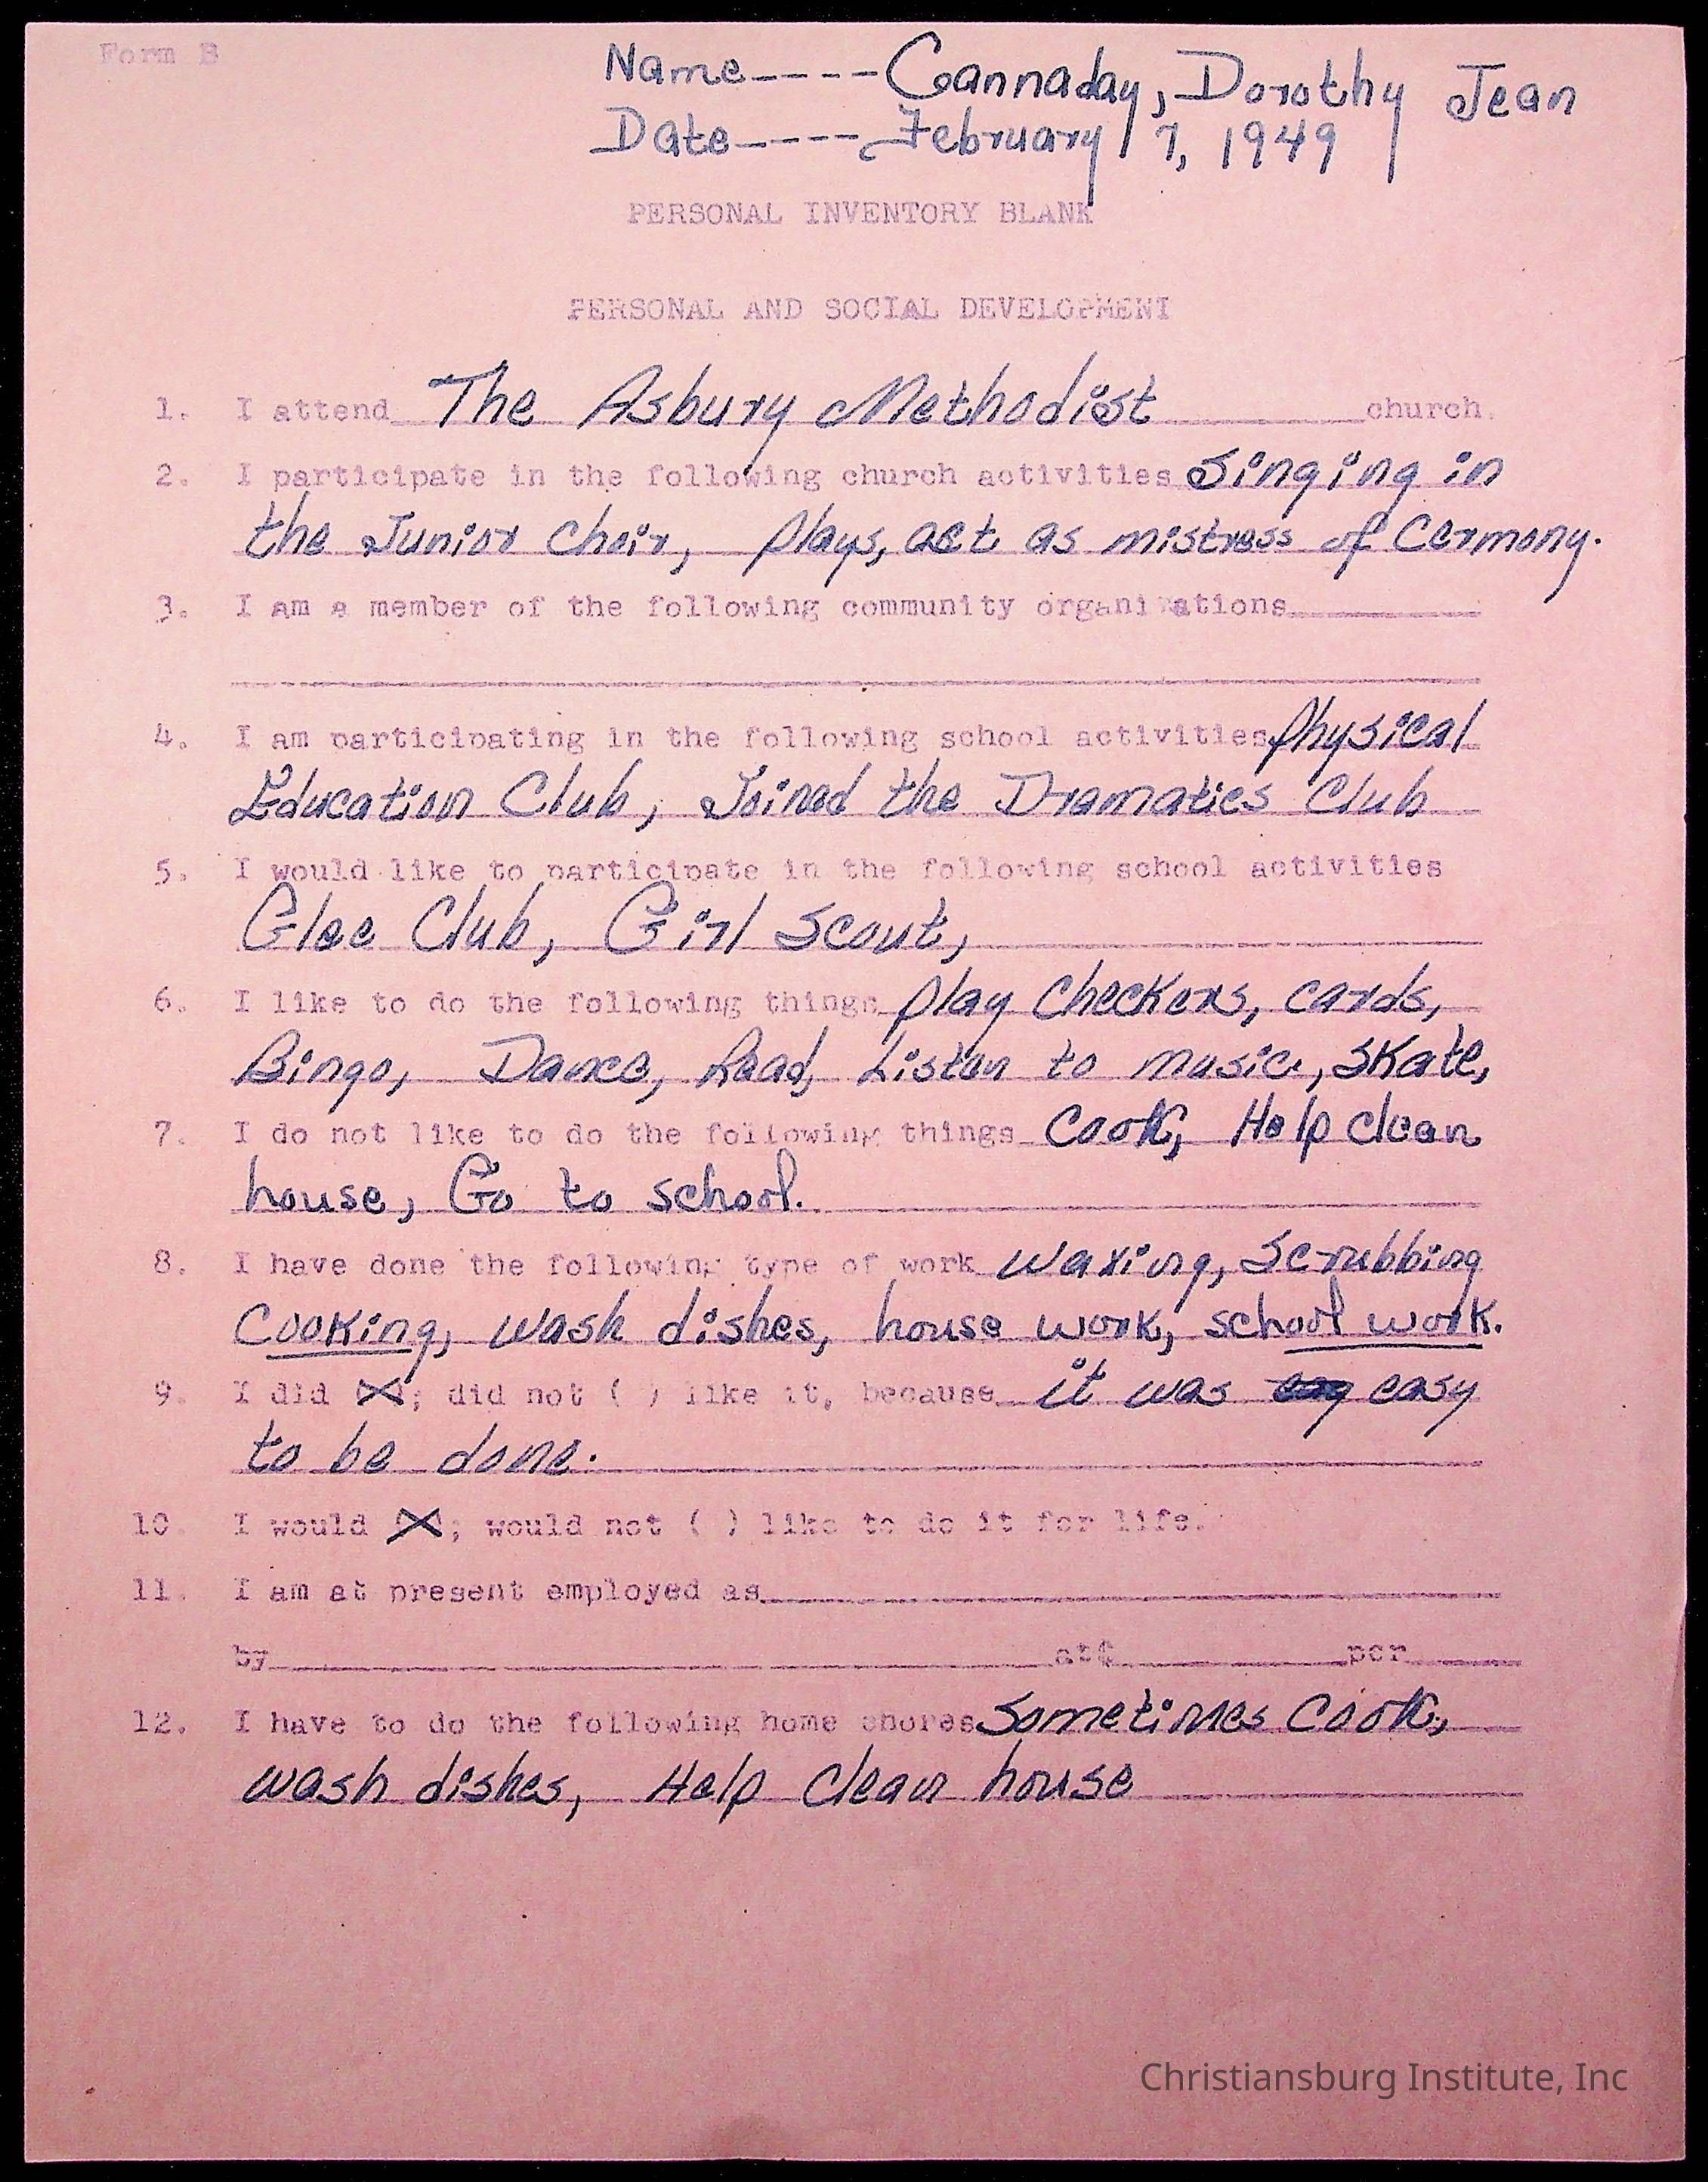 Form B
Name----Cannaday, Dorothy Jean
Date-----February 7, 1949
PERSONAL INVENTORY BLANK
PERSONAL AND SOCIAL DEVELOPMENT
1. I attend The Asbury Methodist church.
2. I participate in the following church activities Singing in
the Junior Choir, plays, act as mistress of Cermony.
3. I am a member of the following community organizations
4. I am participating in the following school activities Physical
Education Club, Joined the Dramatics Club
5. I would like to participate in the following school activities
Glee Club, Girl Scout,
6. I like to do the following things play Checkers, cards,
Bingo, Dance, Read, Listen to music, Skate,
7. I do not like to do the following things Cook, Help clean
house, Go to school.
8. I have done the following type of work waxing, Scrubbing
Cooking, wash dishes, house work, school work.
9. I did (X); did not ( ) like it, because it was easy
to be done.
10. I would (X); would not ( ) like to do it for life.
11. I am at present employed as
by at$ per
12. I have to do the following home chores Sometimes Cook,
wash dishes, Help Clean house
Christiansburg Institute, Inc